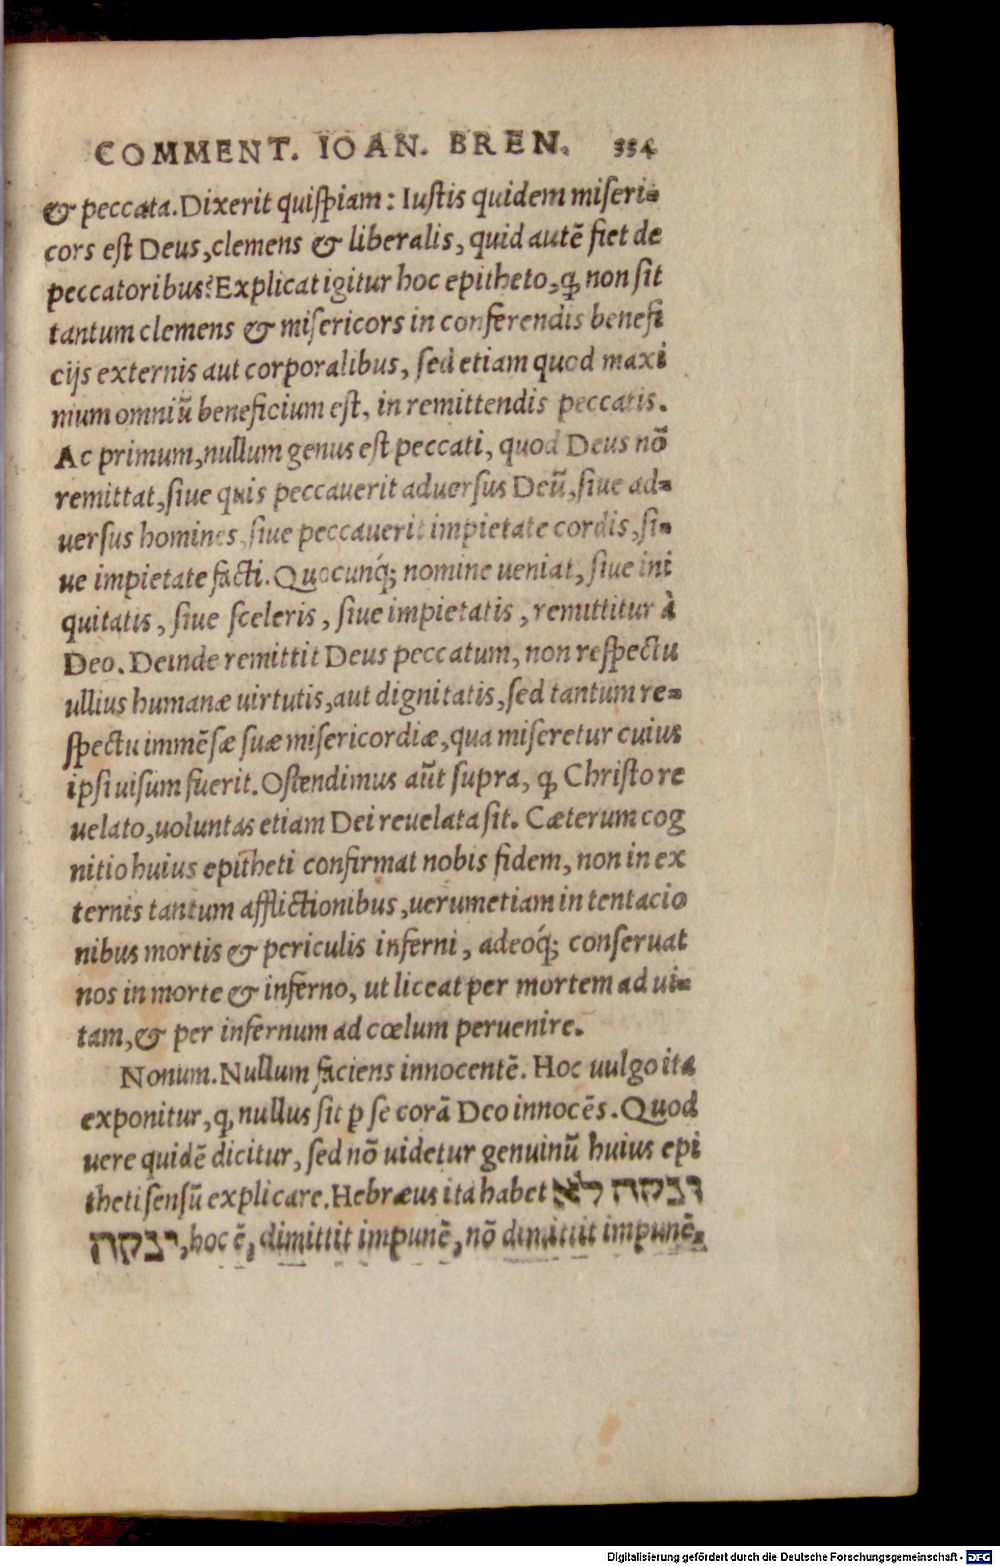 COMMENT. IOAN. BREN. 334
& peccata. Dixerit quiſpiam: Iuſtis quidem miſeri-
cors eſt Deus, clemens & liberalis, quid autē fiet de
peccatoribus? Explicat igitur hoc epitheto, ꝙ non ſit
tantum clemens & miſericors in conferendis benefi
cijs externis aut corporalibus, ſed etiam quod maxi
mum omniū beneficium eſt, in remittendis peccatis.
Ac primum, nullum genus eſt peccati, quod Deus nō
remittat, ſiue quis peccauerit aduerſus Deū, ſiue ad-
uerſus homines, ſiue peccauerit impietate cordis, ſi-
ue impietate facti. Quocunq́; nomine ueniat, ſiue ini
quitatis, ſiue ſceleris, ſiue impietatis, remittitur à
Deo. Deinde remittit Deus peccatum, non reſpectu
ullius humanæ uirtutis, aut dignitatis, ſed tantum re-
ſpectu immēſæ ſuæ miſericordiæ, qua miſeretur cuius
ipſi uiſum fuerit. Oſtendimus aūt ſupra, ꝙ Chriſto re
uelato, uoluntas etiam Dei reuelata ſit. Cæterum cog
nitio huius epitheti confirmat nobis fidem, non in ex
ternis tantum afflictionibus, uerumetiam in tentacio
nibus mortis & periculis inferni, adeoq́; conſeruat
nos in morte & inferno, ut liceat per mortem ad ui-
tam, & per infernum ad cœlum peruenire.
Nonum. Nullum faciens innocentē. Hoc uulgo ita
exponitur, ꝙ nullus ſit ꝑ ſe corā Deo innocēs. Quod
uere quidē dicitur, ſed nō uidetur genuinū huius epi
theti ſenſū explicare. Hebræus ita habet ונקה לא
ינקה, hoc ē, dimittit impunē, nō dimittit impunē.
Digitalisierung gefördert durch die Deutsche Forschungsgemeinschaft - DFG